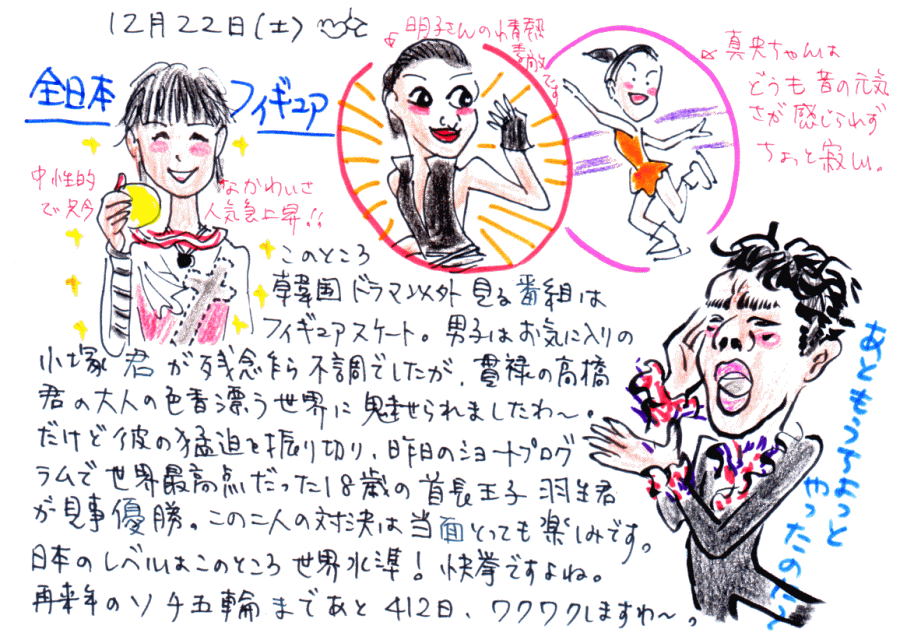 12月22日(土)
全日本 フィギュア
明子さんの情熱
素敵です
真央ちゃんは
どうも昔の元気
さが感じられず
ちょっと寂しい。
中性的 なかわいさ
で 人気急上昇!!
このところ
韓国ドラマ以外見る番組は
フィギュアスケート。男子はお気に入りの
小塚君が残念乍ら不調でしたが、貫禄の高橋
君の大人の色香漂う世界に魅せられましたわ〜。
だけど彼の猛追を振り切り、昨日のショートプログ
ラムで世界最高点だった18歳の首長王子羽生君
が見事優勝。この二人の対決は当面とっても楽しみです。
日本のレベルはこのところ世界水準!快挙ですよね。
再来年のソチ五輪まであと412日、ワクワクしますわ〜。
あともうちょっと
やったのに〜